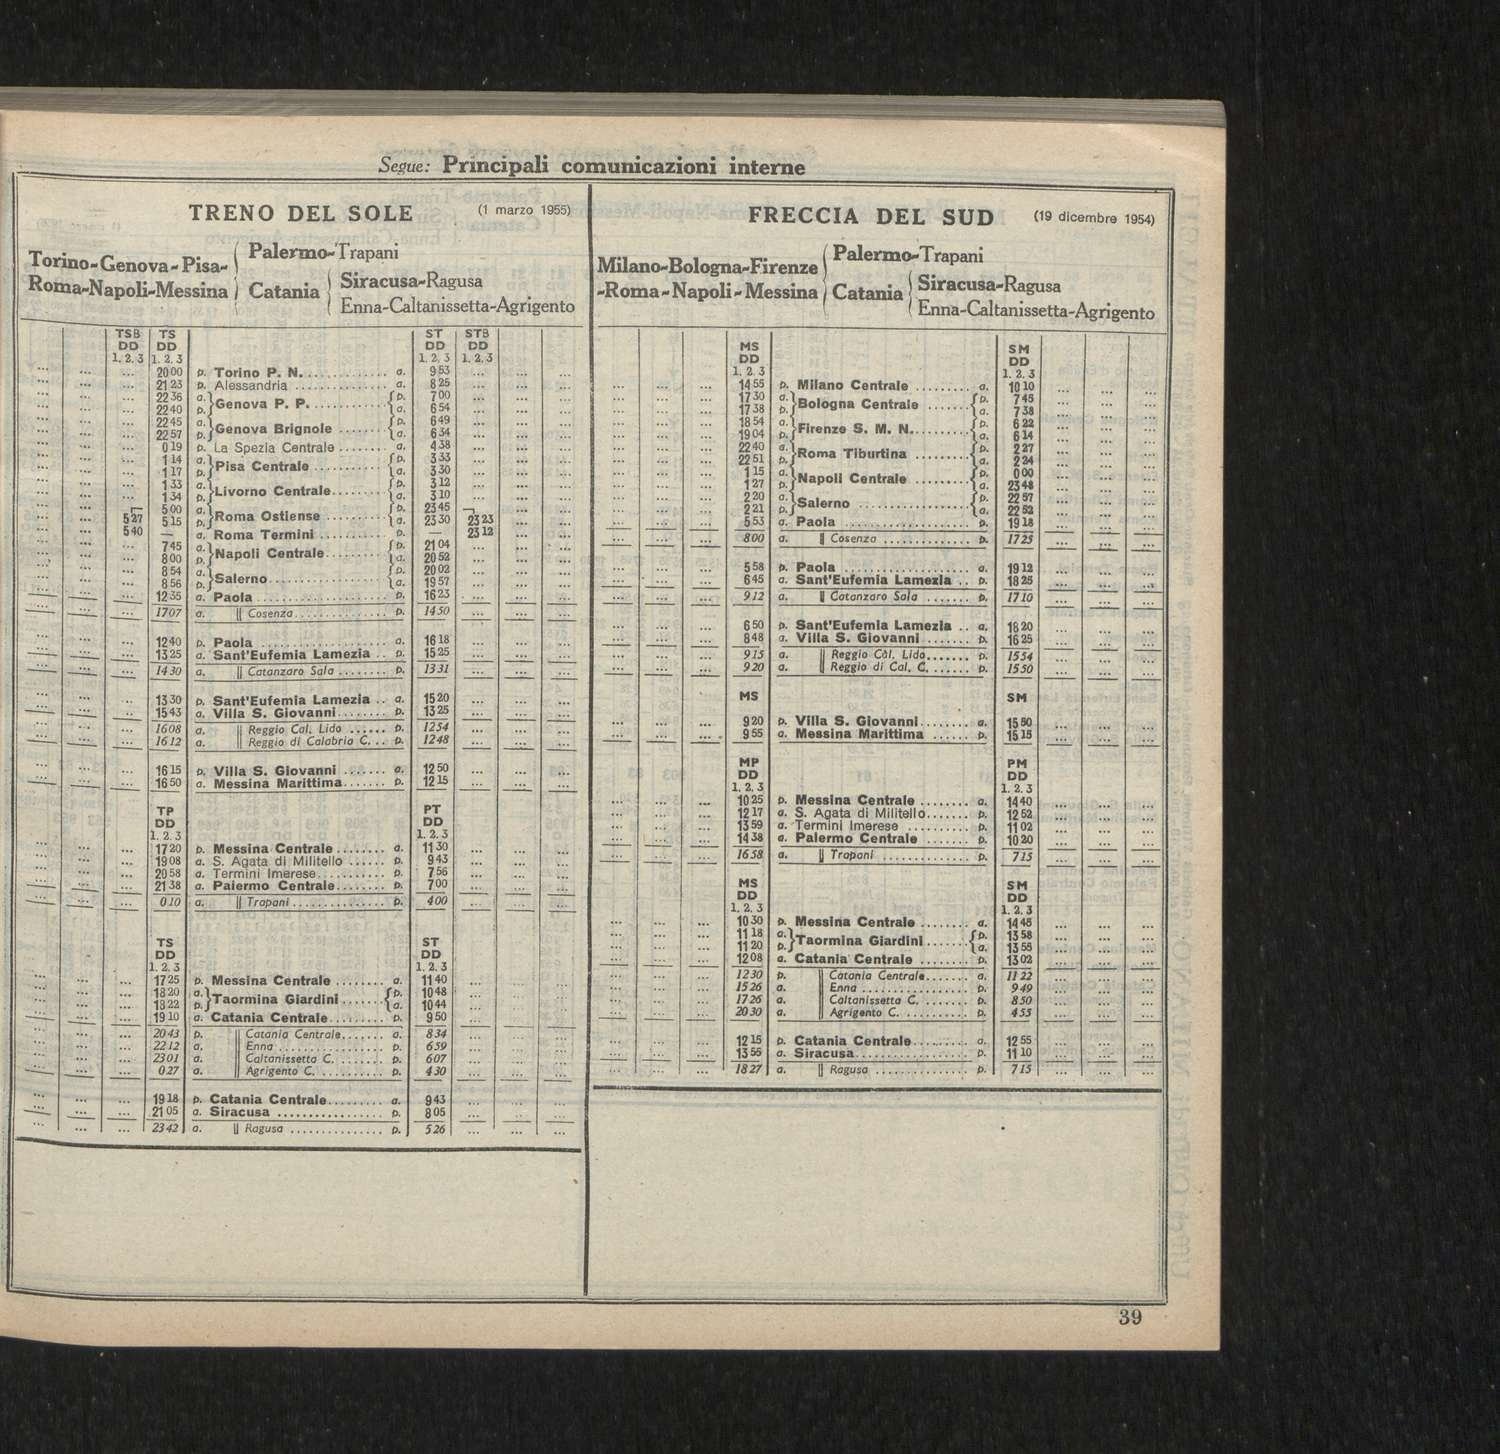 Segue: Principali comunicazioni interne
TRENO DEL SOLE (1 marzo 1955)
Torino-Genova-Pisa-
Roma-Napoli-Messina
Palermo-Trapani
Catania
Siracusa-Ragusa
Enna-Caltanissetta-Agrigento
TSB TS ST STB
DD DD DD DD
1. 2. 3 1. 2. 3 1. 2. 3 1. 2. 3
... ... ... 20 00 p. Torino P. N. a. 9 53 ... ... ...
... ... ... 21 23 p. Alessandria a. 8 25 ... ... ...
... ... ... 22 36 a. Genova P. P. p. 7 00 ... ... ...
... ... ... 22 40 p. a. 6 54 ... ... ...
... ... ... 22 45 a. Genova Brignole p. 6 49 ... ... ...
... ... ... 22 57 p. a. 6 34 ... ... ...
... ... ... 0 19 p. La Spezia Centrale a. 4 38 ... ... ...
... ... ... 1 14 a. Pisa Centrale p. 3 33 ... ... ...
... ... ... 1 17 p. a. 3 30 ... ... ...
... ... ... 1 33 a. Livorno Centrale p. 3 12 ... ... ...
... ... ... 1 34 p. a. 3 10 ... ... ...
... ... 5 00 a. Roma Ostiense p. 23 45 ... ...
... ... 5 27 5 15 p. a. 23 30 23 23 ... ...
... ... 5 40 — a. Roma Termini p. — 23 12 ... ...
... ... ... 7 45 a. Napoli Centrale p. 21 04 ... ... ...
... ... ... 8 00 p. a. 20 52 ... ... ...
... ... ... 8 54 a. Salerno p. 20 02 ... ... ...
... ... ... 8 56 p. a. 19 57 ... ... ...
... ... ... 12 35 a. Paola p. 16 23 ... ... ...
... ... ... 17 07 a. || Cosenza p. 14 50 ... ... ...
... ... ... 12 40 p. Paola a. 16 18 ... ... ...
... ... ... 13 25 a. Sant'Eufemia Lamezia p. 15 25 ... ... ...
... ... ... 14 30 a. || Catanzaro Sala p. 13 31 ... ... ...
... ... ... 13 30 p. Sant'Eufemia Lamezia a. 15 20 ... ... ...
... ... ... 15 43 a. Villa S. Giovanni p. 13 25 ... ... ...
... ... ... 16 08 a. || Reggio Cal. Lido p. 12 54 ... ... ...
... ... ... 16 12 a. || Reggio di Calabria C. p. 12 48 ... ... ...
... ... ... 16 15 p. Villa S. Giovanni a. 12 50 ... ... ...
... ... ... 16 50 a. Messina Marittima p. 12 15 ... ... ...
TP PT
DD DD
1. 2. 3 1. 2. 3
... ... ... 17 20 p. Messina Centrale a. 11 30 ... ... ...
... ... ... 19 08 a. S. Agata di Militello p. 9 43 ... ... ...
... ... ... 20 58 a. Termini Imerese p. 7 56 ... ... ...
... ... ... 21 38 a. Palermo Centrale p. 7 00 ... ... ...
... ... ... 0 10 a. || Trapani p. 4 00 ... ... ...
TS ST
DD DD
1. 2. 3 1. 2. 3
... ... ... 17 25 p. Messina Centrale a. 11 40 ... ... ...
... ... ... 18 20 a. Taormina Giardini p. 10 48 ... ... ...
... ... ... 18 22 p. a. 10 44 ... ... ...
... ... ... 19 10 a. Catania Centrale p. 9 50 ... ... ...
... ... ... 20 43 p. || Catania Centrale a. 8 34 ... ... ...
... ... ... 22 12 a. Enna p. 6 59 ... ... ...
... ... ... 23 01 a. Caltanissetta C. p. 6 07 ... ... ...
... ... ... 0 27 a. Agrigento C. p. 4 30 ... ... ...
... ... ... 19 18 p. Catania Centrale a. 9 43 ... ... ...
... ... ... 21 05 a. Siracusa p. 8 05 ... ... ...
... ... ... 23 42 a. || Ragusa p. 5 26 ... ... ...
FRECCIA DEL SUD (19 dicembre 1954)
Milano-Bologna-Firenze
-Roma-Napoli-Messina
Palermo-Trapani
Catania
Siracusa-Ragusa
Enna-Caltanissetta-Agrigento
MS SM
DD DD
1. 2. 3 1. 2. 3
... ... ... 14 55 p. Milano Centrale a. 10 10 ... ... ...
... ... ... 17 30 a. Bologna Centrale p. 7 45 ... ... ...
... ... ... 17 38 p. a. 7 38 ... ... ...
... ... ... 18 54 a. Firenze S. M. N. p. 6 22 ... ... ...
... ... ... 19 04 p. a. 6 14 ... ... ...
... ... ... 22 40 a. Roma Tiburtina p. 2 27 ... ... ...
... ... ... 22 51 p. a. 2 24 ... ... ...
... ... ... 1 15 a. Napoli Centrale p. 0 00 ... ... ...
... ... ... 1 27 p. a. 23 48 ... ... ...
... ... ... 2 20 a. Salerno p. 22 57 ... ... ...
... ... ... 2 21 p. a. 22 52 ... ... ...
... ... ... 5 53 a. Paola p. 19 18 ... ... ...
... ... ... 8 00 a. || Cosenza p. 17 25 ... ... ...
... ... ... 5 58 p. Paola a. 19 12 ... ... ...
... ... ... 6 45 a. Sant'Eufemia Lamezia p. 18 25 ... ... ...
... ... ... 9 12 a. || Catanzaro Sala p. 17 10 ... ... ...
... ... ... 6 50 p. Sant'Eufemia Lamezia a. 18 20 ... ... ...
... ... ... 8 48 a. Villa S. Giovanni p. 16 25 ... ... ...
... ... ... 9 15 a. || Reggio Cal. Lido p. 15 54 ... ... ...
... ... ... 9 20 a. || Reggio di Cal. C. p. 15 50 ... ... ...
MS SM
... ... ... 9 20 p. Villa S. Giovanni a. 15 50 ... ... ...
... ... ... 9 55 a. Messina Marittima p. 15 15 ... ... ...
MP PM
DD DD
1. 2. 3 1. 2. 3
... ... ... 10 25 p. Messina Centrale a. 14 40 ... ... ...
... ... ... 12 17 a. S. Agata di Militello p. 12 52 ... ... ...
... ... ... 13 59 a. Termini Imerese p. 11 02 ... ... ...
... ... ... 14 38 a. Palermo Centrale p. 10 20 ... ... ...
... ... ... 16 58 a. || Trapani p. 7 15 ... ... ...
MS SM
DD DD
1. 2. 3 1. 2. 3
... ... ... 10 30 p. Messina Centrale a. 14 45 ... ... ...
... ... ... 11 18 a. Taormina Giardini p. 13 58 ... ... ...
... ... ... 11 20 p. a. 13 55 ... ... ...
... ... ... 12 08 a. Catania Centrale p. 13 02 ... ... ...
... ... ... 12 30 p. || Catania Centrale a. 11 22 ... ... ...
... ... ... 15 26 a. Enna p. 9 49 ... ... ...
... ... ... 17 26 a. Caltanissetta C. p. 8 50 ... ... ...
... ... ... 20 30 a. Agrigento C. p. 4 55 ... ... ...
... ... ... 12 15 p. Catania Centrale a. 12 55 ... ... ...
... ... ... 13 55 a. Siracusa p. 11 10 ... ... ...
... ... ... 18 27 a. || Ragusa p. 7 15 ... ... ...
39